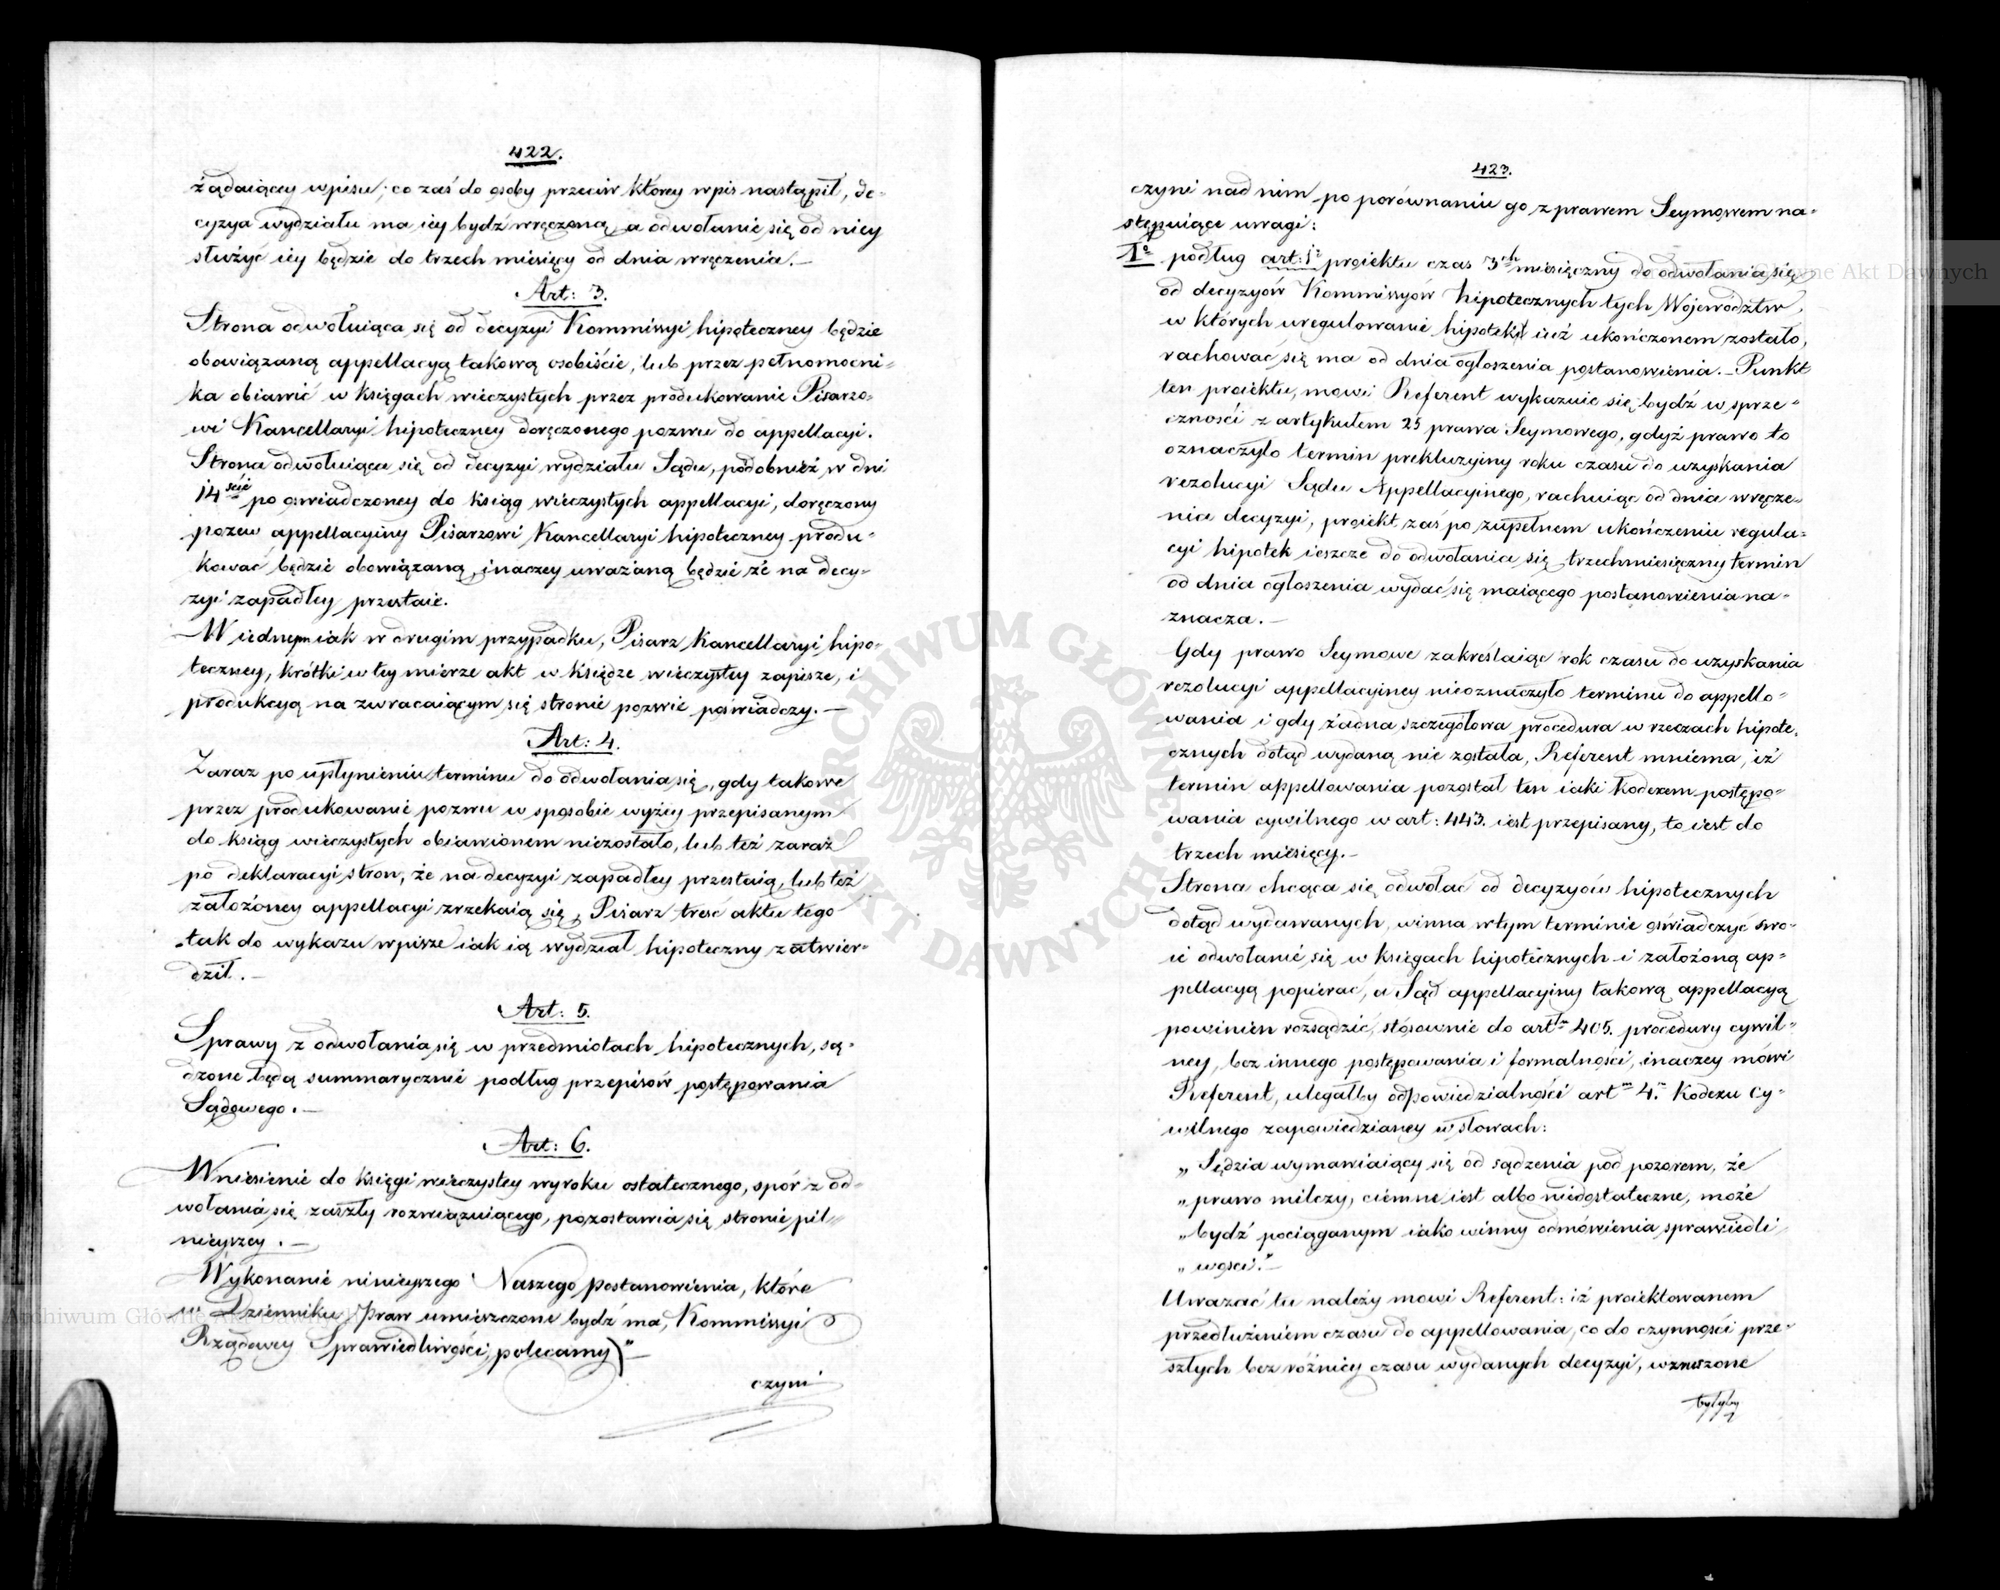 422.
żądaiącey wpisu; co zaś do osoby przeciw którey wpis nastąpił, de-
cyzya wydziału ma iéy bydź wręczoną, a odwołanie się od niey
służyć iéy będzie do trzech miesięcy od dnia wręczenia.—
Art: 3.
Strona odwołuiąca się od decyzyi Kommissyi hipoteczney będzie
obowiązaną appellacyą takową osobiście, lub przez pełnomocni-
ka obiawić w księgach wieczystych przez produkowanie Pisarzo-
wi Kancellaryi hipoteczney doręczonego pozwu do appellacyi.
Strona odwołuiąca się od decyzyi wydziału Sądu, podobnież w dni
14ście po oswiadczoney do ksiąg wieczystych appellacyi, doręczony
pozew appellacyiny Pisarzowi Kancellaryi hipoteczney produ-
kować będzie obowiązaną, inaczey uważaną będzie że na decy-
zyi zapadłey przestaie.
W iednym iak w drugim przypadku, Pisarz Kancellaryi hipo-
teczney, krótki w tey mierze akt w księdze wieczystey zapisze, i
produkcyą na zwracaiącym się stronie pozwie poświadczy.—
Art: 4.
Zaraz po upłynieniu terminu do odwołania się, gdy takowe
przez produkowanie pozwu w sposobie wyżéy przepisanym
do ksiąg wieczystych obiawionem niezostało, lub też zaraz
po deklaracyi stron, że na decyzyi zapadłey przestaią, lub też
założoney appellacyi zrzekaią się, Pisarz treść aktu tego
tak do wykazu wpisze iak ią wydział hipoteczny zatwier-
dził.—
Art: 5.
Sprawy z odwołania się w przedmiotach hipotecznych, są-
dzone będą summarycznie podług przepisów postępowania
Sądowego.—
Art: 6.
Wniesienie do księgi wieczystey wyroku ostatecznego, spór z od-
wołania się zaszły rozwiązuiącego, pozostawia się stronie pil-
nieyszey.—
Wykonanie ninieyszego Naszego postanowienia, które
w Dzienniku Praw umieszczone bydź ma, Kommissyi
Rządowey Sprawiedliwości, polecamy)"—
czyni
423.
czyni nad nim po porównaniu go z prawem Seymowem na-
stępuiące uwagi:
1o podług art: 1o proiektu czas 3ch miesięczny do odwołania się
od decyzyów Kommissyów hipotecznych tych Województw,
w których uregulowanie hipotek iuż ukończonem zostało,
rachować się ma od dnia ogłoszenia postanowienia.— Punkt
ten proiektu, mowi Referent wykazuie się bydź w sprze-
czności z artykułem 25 prawa Seymowego, gdyż prawo to
oznaczyło termin prekluzyiny roku czasu do uzyskania
rezolucyi Sądu Appellacyinego, rachuiąc od dnia wręcze-
nia decyzyi, proiekt zaś po zupełnem ukończeniu regula-
cyi hipotek ieszcze do odwołania się trzechmiesięczny termin
od dnia ogłoszenia wydać się maiącego postanowienia na-
znacza.—
Gdy prawo Seymowe zakréślaiąc rok czasu do uzyskania
rezolucyi appellacyiney nieoznaczyło terminu do appello-
wania i gdy żadna szczegołowa procedura w rzeczach hipote-
cznych dotąd wydaną nie została, Referent mniema, iż
termin appellowania pozostał ten iaki Kodexem postępo-
wania cywilnego w art: 443. iest przepisany, to iest do
trzech miesięcy.—
Strona chcąca się odwołać od decyzyów hipotecznych
dotąd wydawanych, winna w tym terminie oświadczyć swo-
ie odwołanie się w księgach hipotecznych i założoną ap-
pellacyą popierać, a Sąd appellacyiny takową appellacyą
powinien rozsądzić, stósownie do artłu 405. procedury cywil-
ney, bez innego postępowania i formalności, inaczey mówi
Referent, uległby odpowiedzialności artm 4.m Kodexu Cy-
wilnego zapowiedzianey w słowach:
„ Sędzia wymawiaiący się od sądzenia pod pozorem, że
„ prawo milczy, ciemne iest albo niedostateczne, może
„ bydź pociąganym iako winny odmówienia sprawiedli
„ wości."—
Uważać tu należy mowi Referent: iż proiektowanem
przedłużeniem czasu do appellowania, co do czynności prze-
szłych bez różnicy czasu wydanych decyzyi, wzruszone
byłyby